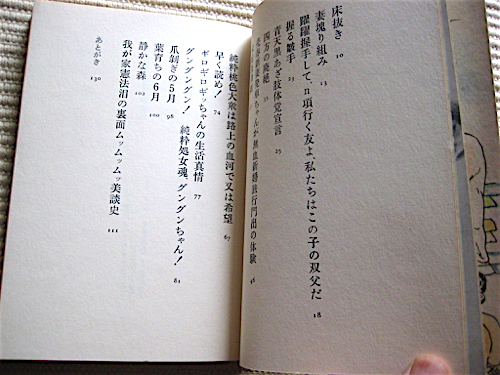 床抜き 10
妻塊り組み 13
躍躍握手して、n項行く友よ、私たちはこの子の双父だ 18
握る触手 25
青天黒あざ肢体党宣言
四方の発砲
ちゃんが無血新婚旅行門出の体験 46
純粋桃色大衆は路上の血河で又は希望 67
早く読め! 74
ギロギロギッちゃんの生活真情 77
グングングン! 純粋処女魂、グングンちゃん! 81
爪剝ぎの5月 98
葉育ちの6月 100
静かな森 102
我が家憲法泪の裏面ムッムッムッ美談史 111
あとがき 130